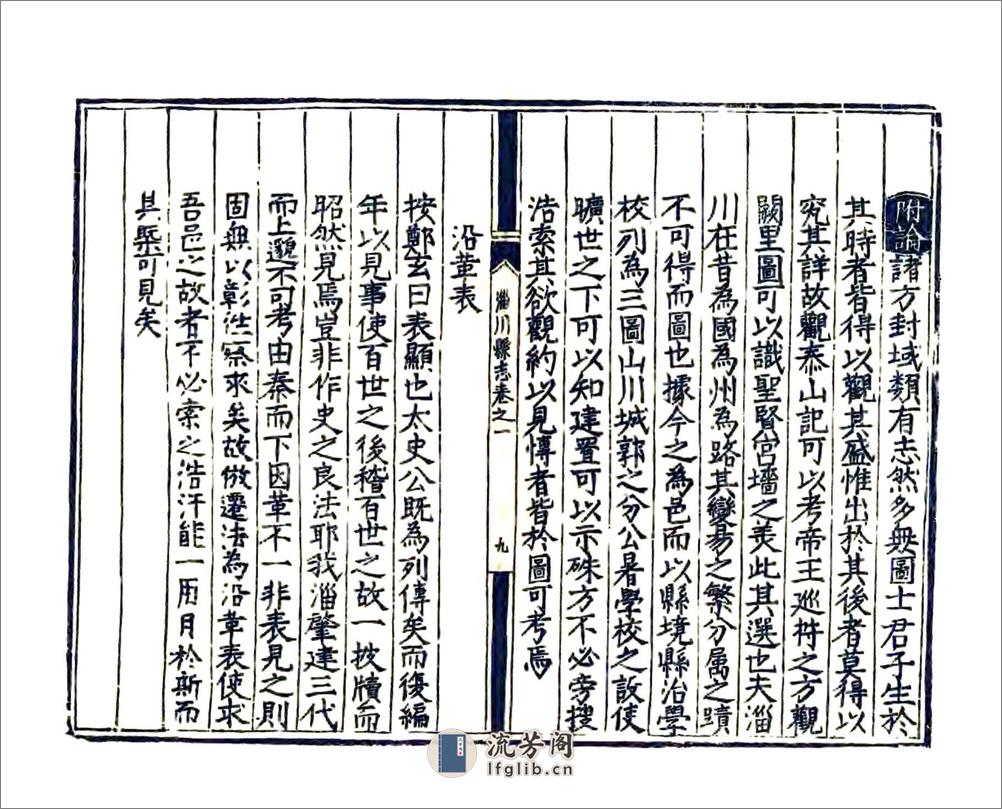 附論諸方封域類有志然多無圖士君子生於
其時者皆得以觀其盛惟出於其後者莫得以
究其詳故觀泰山記可以考帝王巡狩之方觀
闕里圖可以識聖賢宮墻之美此其選也夫淄
川在昔為國為州為路其變易之繁分属之蹟
不可得而圖也據今之為邑而以縣境縣治學
校列為三圖山川城郭之分公署學校之設使
曠世之下可以知建置可以示殊方不必旁搜
浩索其欲觀約以見慱者皆於圖可考焉
淄川縣志卷之一
九
沿革表
按鄭玄曰表顯也太史公既為列傳矣而復編
年以見事使百世之後稽百世之故一披牘而
昭然見焉豈非作史之良法耶我淄肇建三代
而上邈不可考由秦而下因革不一非表見之則
固無以彰徃察來矣故倣遷法為沿革表使求
吾邑之故者不必索之浩汗能一用目於斯而
其槩可見矣
流芳阁
lfglib.cn